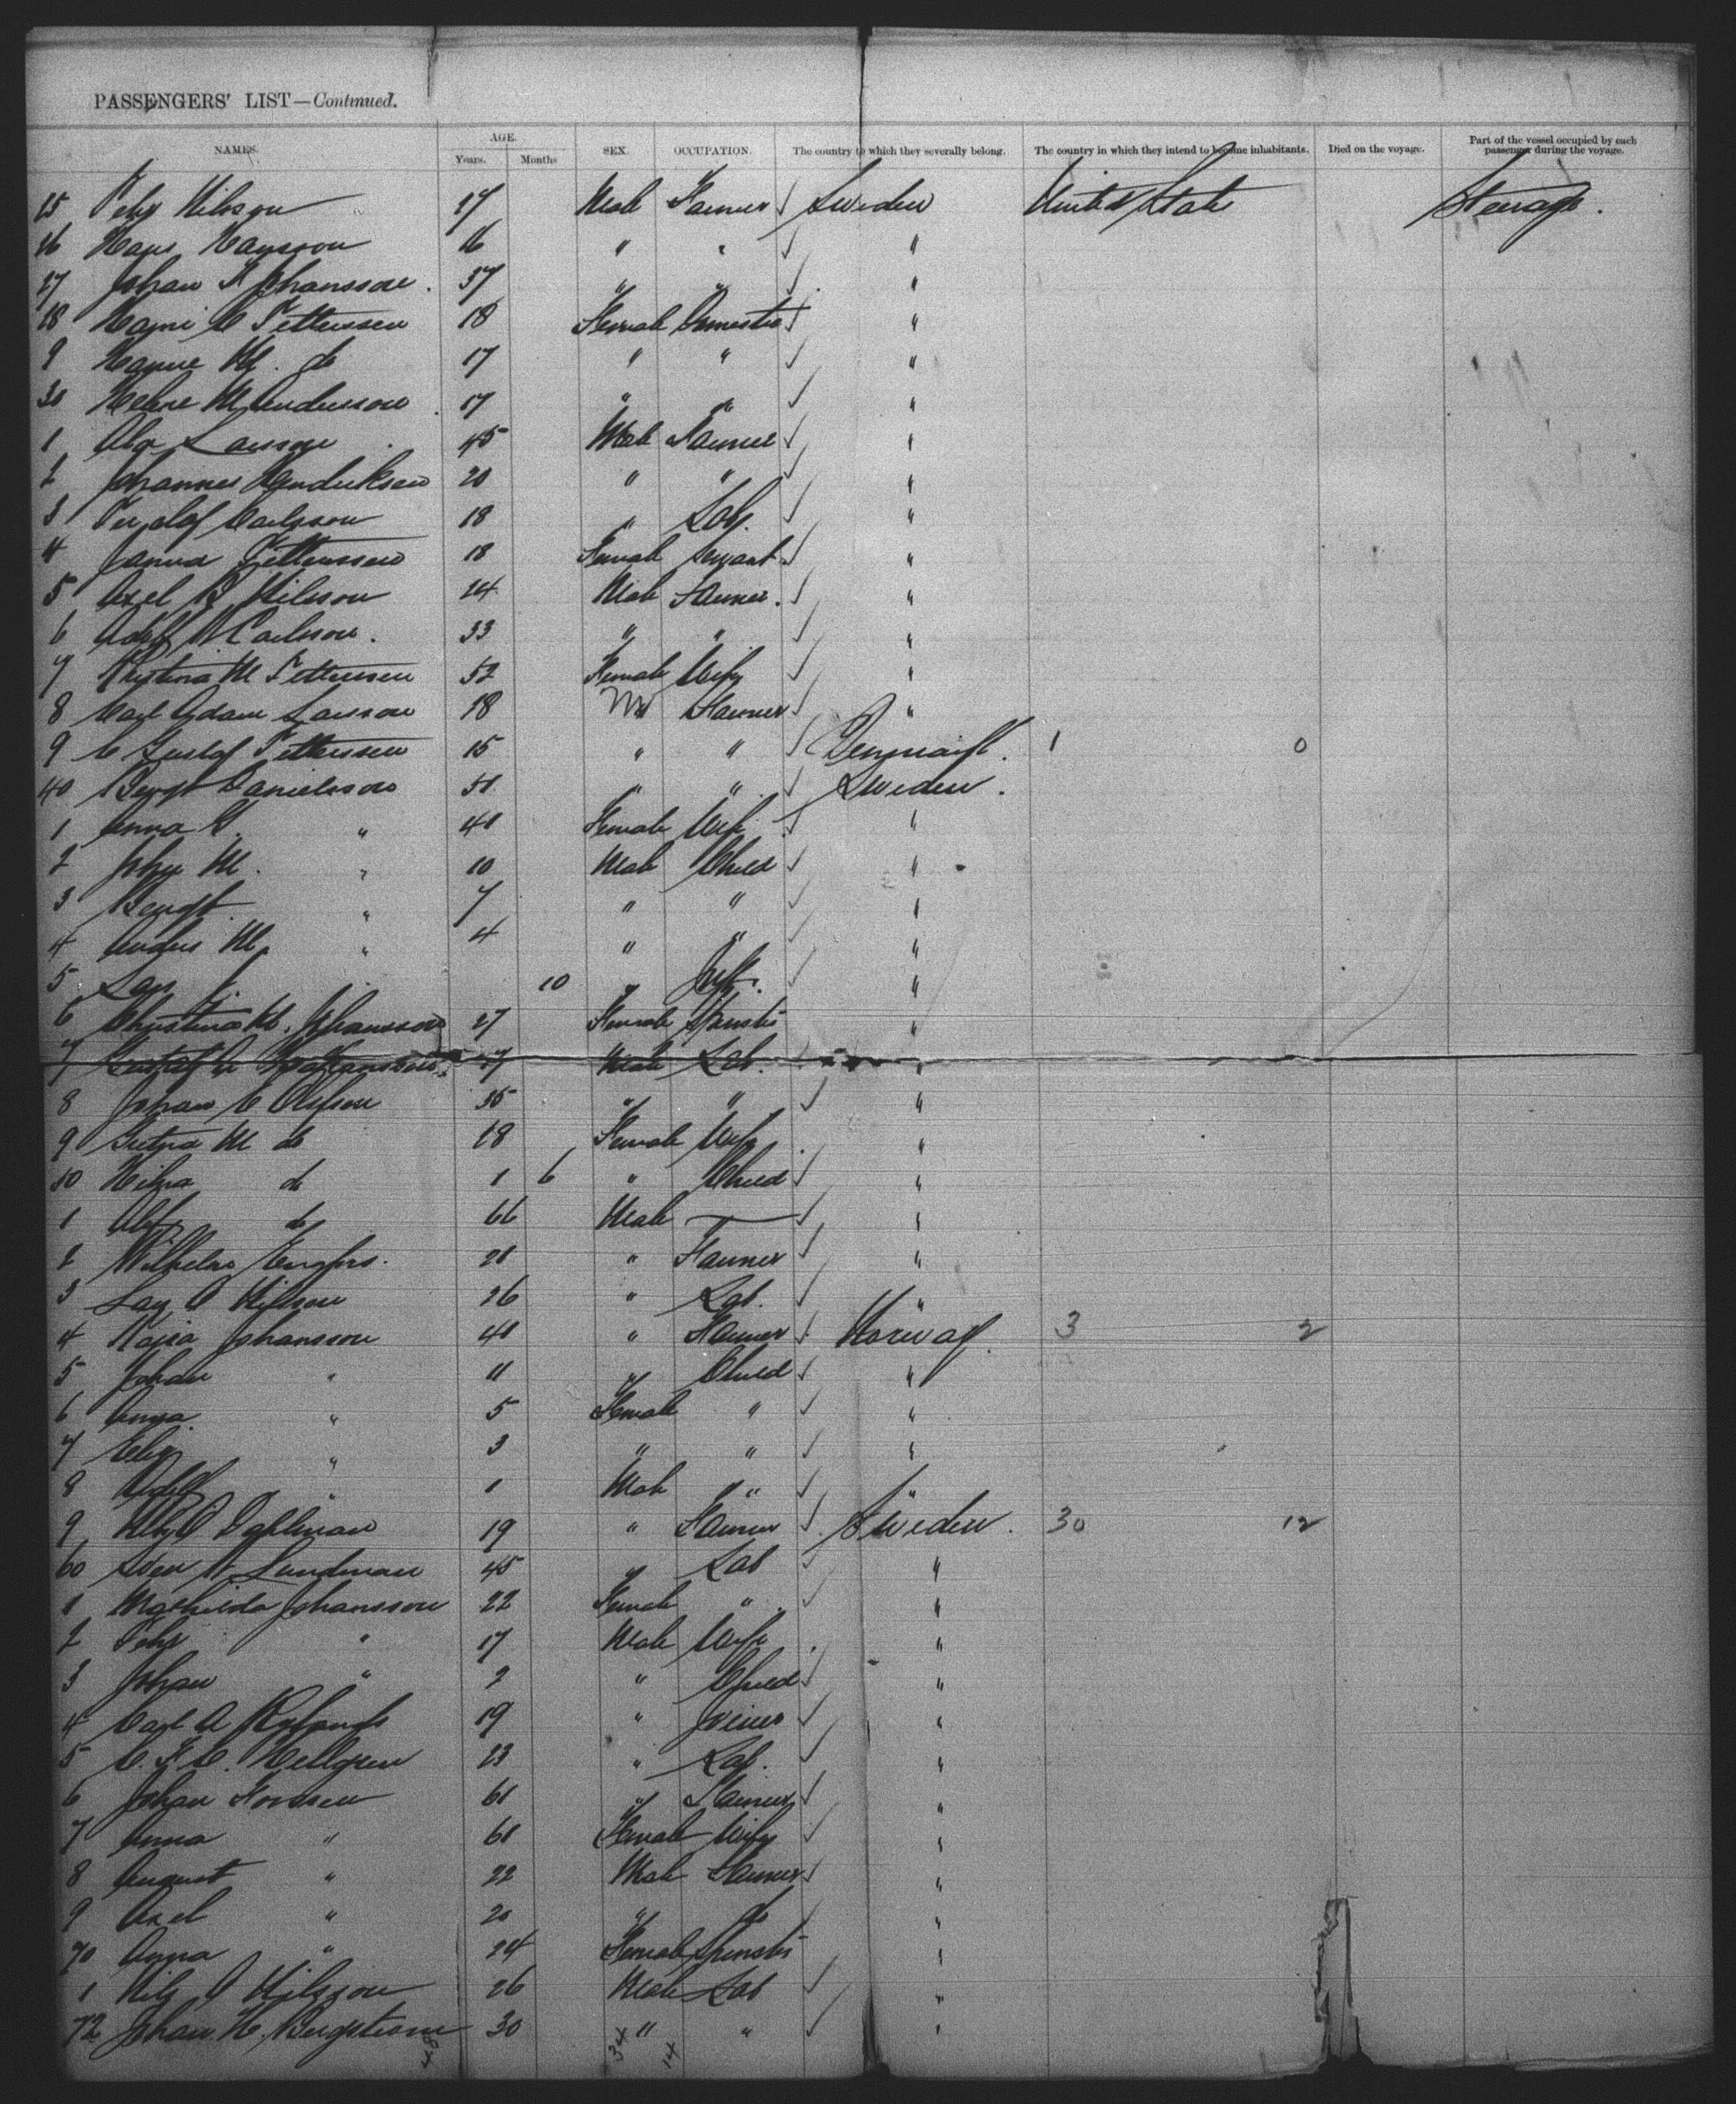 PASSENGERS' LIST—Continued.
NAMES. AGE. Years. Months SEX. OCCUPATION. The country to which they severally belong. The country in which they intend to become inhabitants. Died on the voyage. Part of the vessel occupied by each passenger during the voyage.
25 Pehr Nilsson 27 Male Farmer Sweden United States Steerage.
26 Hans Hansson 16 " " "
27 Johan Johansson. 37 " " "
28 C Pettersson 18 Female Domestic "
9 Hanne M. do 17 " " "
30 M Andersson 17 " " "
1 Larsson 45 Male Farmer "
2 Johannes Hendriksen 20 " " "
3 Carlsson 18 " Lab. "
4 Janna Pettersson 18 Female Servant "
5 Axel Nilsson 24 Male Farmer. "
6 Adolf Carlsson. 33 " " "
7 Kristina M Pettersson 52 Female Wife "
8 Carl Adam Larsson 18 M Farmer "
9 C Gustaf Pettersson 15 " " Denmark. 1 0
40 Bengt Danielsson 51 " " Sweden.
1 Anna " 41 Female Wife "
2 John M. " 10 Male Child "
3 Bengt " 7 " " "
4 Anders M. " 4 " " "
5 Lars 10 " Inft. "
6 Christina M. Johansson 27 Female Spinster "
7 Gustaf A 27 Male Lab. "
8 Johan C Olsson 35 " " "
9 M do 28 Female Wife "
50 Hilma do 1 6 " Child "
1 do 66 Male — "
2 Wilhelm 21 " Farmer "
3 Lars Nilsson 26 " Lab. "
4 Kajsa Johansson 41 " Farmer Norway. 3 2
5 Johan " 11 " Child "
6 Anna " 5 Female " "
7 " 3 " " "
8 Adolf " 1 Male " "
9 Dahlman 19 " Farmer Sweden. 30 12
60 Sven Lundman 45 " Lab "
1 Mathilda Johansson 22 Female " "
2 Pehr " 17 Male Wife "
3 Johan " 2 " Child "
4 Carl A 19 " Joiner "
5 Hellgren 23 " Lab. "
6 Johan 61 " Farmer "
7 Anna " 61 Female Wife "
8 August " 22 Male Farmer "
9 Axel " 20 " do "
70 Anna " 24 Female Spinster "
1 Nils Nilsson 26 Male Lab "
72 Johan Bergstrom 30 " " "
48 34 14